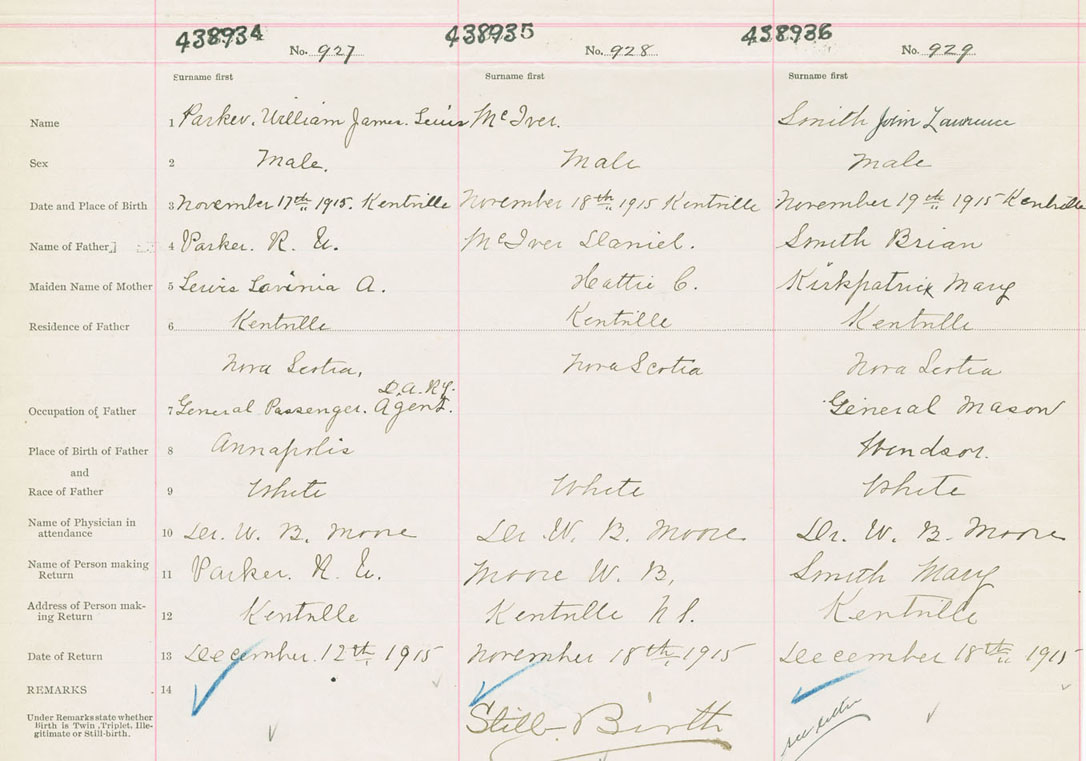 438934 438935 438936
No. 927 No. 928 No. 929
Surname first Surname first Surname first
Name 1 Parker. William James. Lewis McIver. Smith John Lawrence
Sex 2 Male. Male Male
Date and Place of Birth 3 November 17th 1915. Kentville November 18th 1915 Kentville November 19th 1915 Kentville
Name of Father 4 Parker. R. U. McIver Daniel. Smith Brian
Maiden Name of Mother 5 Lewis Lavinia A. Hattie C. Kirkpatrick Mary
Residence of Father 6 Kentville Kentville Kentville
Nova Scotia, Nova Scotia Nova Scotia
D.A.Ry.
Occupation of Father 7 General Passenger. Agent. General Mason
Place of Birth of Father 8 Annapolis Windsor.
and
Race of Father 9 White White White
Name of Physician in
attendance 10 Dr. W. B. Moore Dr. W. B. Moore Dr. W. B. Moore
Name of Person making
Return 11 Parker. R. U. Moore W. B, Smith Mary
Address of Person mak-
ing Return 12 Kentville Kentville N.S. Kentville
Date of Return 13 December. 12th, 1915 November 18th, 1915 December 18th 1915
REMARKS 14
Under Remarks state whether
Birth is Twin, Triplet, Ille-
gitimate or Still-birth.
Still-Birth
see letter